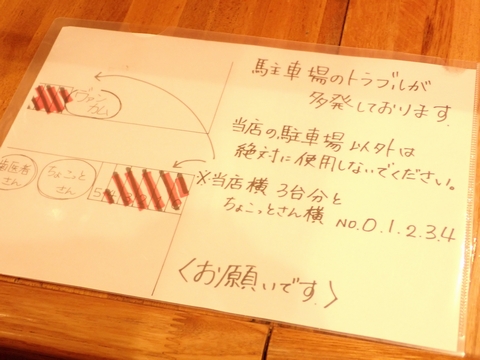 駐車場のトラブルが
多発しております。
当店の駐車場以外は
絶対に使用しないでください。
※当店横 3台分と
ちょこっとさん横 No.0.1.2.3.4
〈お願いです。〉
ヴァン
歯医者
さん
ちょこっと
さん